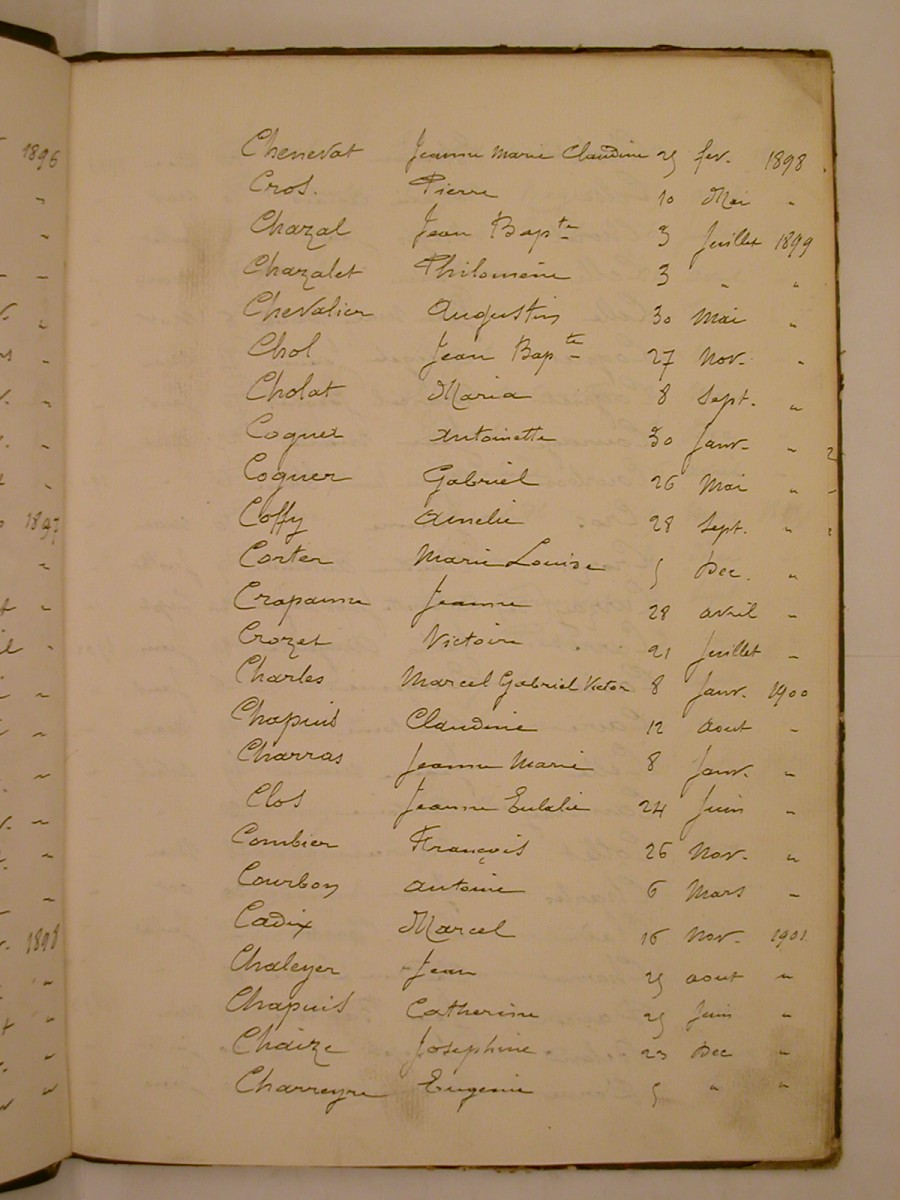 1896
Chenevat Jeanne Marie Claudine 25 fev. 1898
Cros. Pierre 10 Mai "
Chazal Jean Bapte 3 Juillet 1899
Chazalet Philomène 3 " "
Chevalier Augustin 30 Mai "
Chol Jean Bapte 27 Nov. "
Cholat Maria 8 Sept. "
Coquet Antoinette 30 Janv. "
Coquer Gabriel 26 Mai "
Coffy Amelie 28 Sept. "
1897
Corter Marie Louise 5 Dec. "
Crapanne Jeanne 28 avril "
Crozet Victoire 21 Juillet "
Charles Marcel Gabriel Victor 8 Janv. 1900
Chapuis Claudine 12 Aout "
Charras Jeanne Marie 8 Janv. "
Clos Jeanne Eulalie 24 Juin "
Combier François 26 Nov. "
Courbon Antoine 6 Mars "
Cadix Marcel 16 Nov. 1901
1898
Chaleyer Jean 25 aout "
Chapuis Catherine 25 Juin "
Chaize Josephine 23 Dec "
Charreyre Eugenie 5 " "